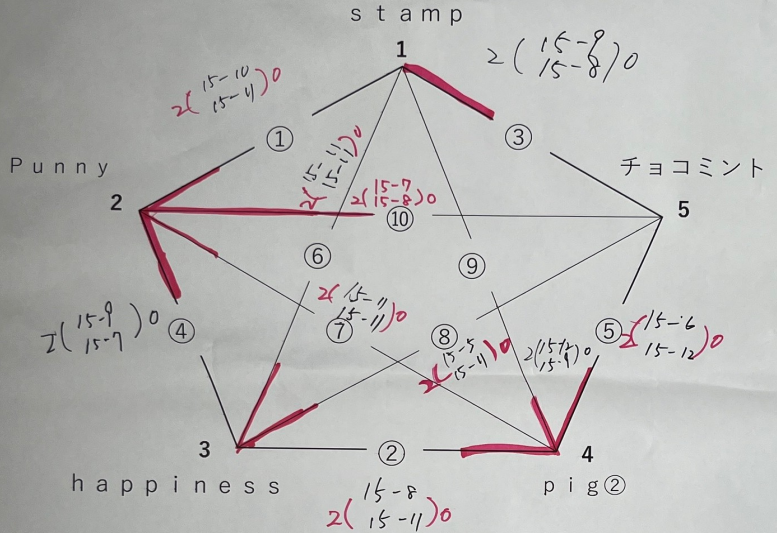 stamp
1
2(15-9
15-8)0
2(15-10
15-4)0
①
③
Punny
2
チョコミント
5
2(15-4
15-11)0
2(15-7
15-8)0
⑩
⑥
⑨
2(15-9
15-7)0
④
2(15-11
15-11)0
⑦
⑧
2(15-5
15-4)0
2(15-12
15-9)0
⑤
2(15-6
15-12)0
3
②
4
happiness
pig②
2(15-8
15-11)0